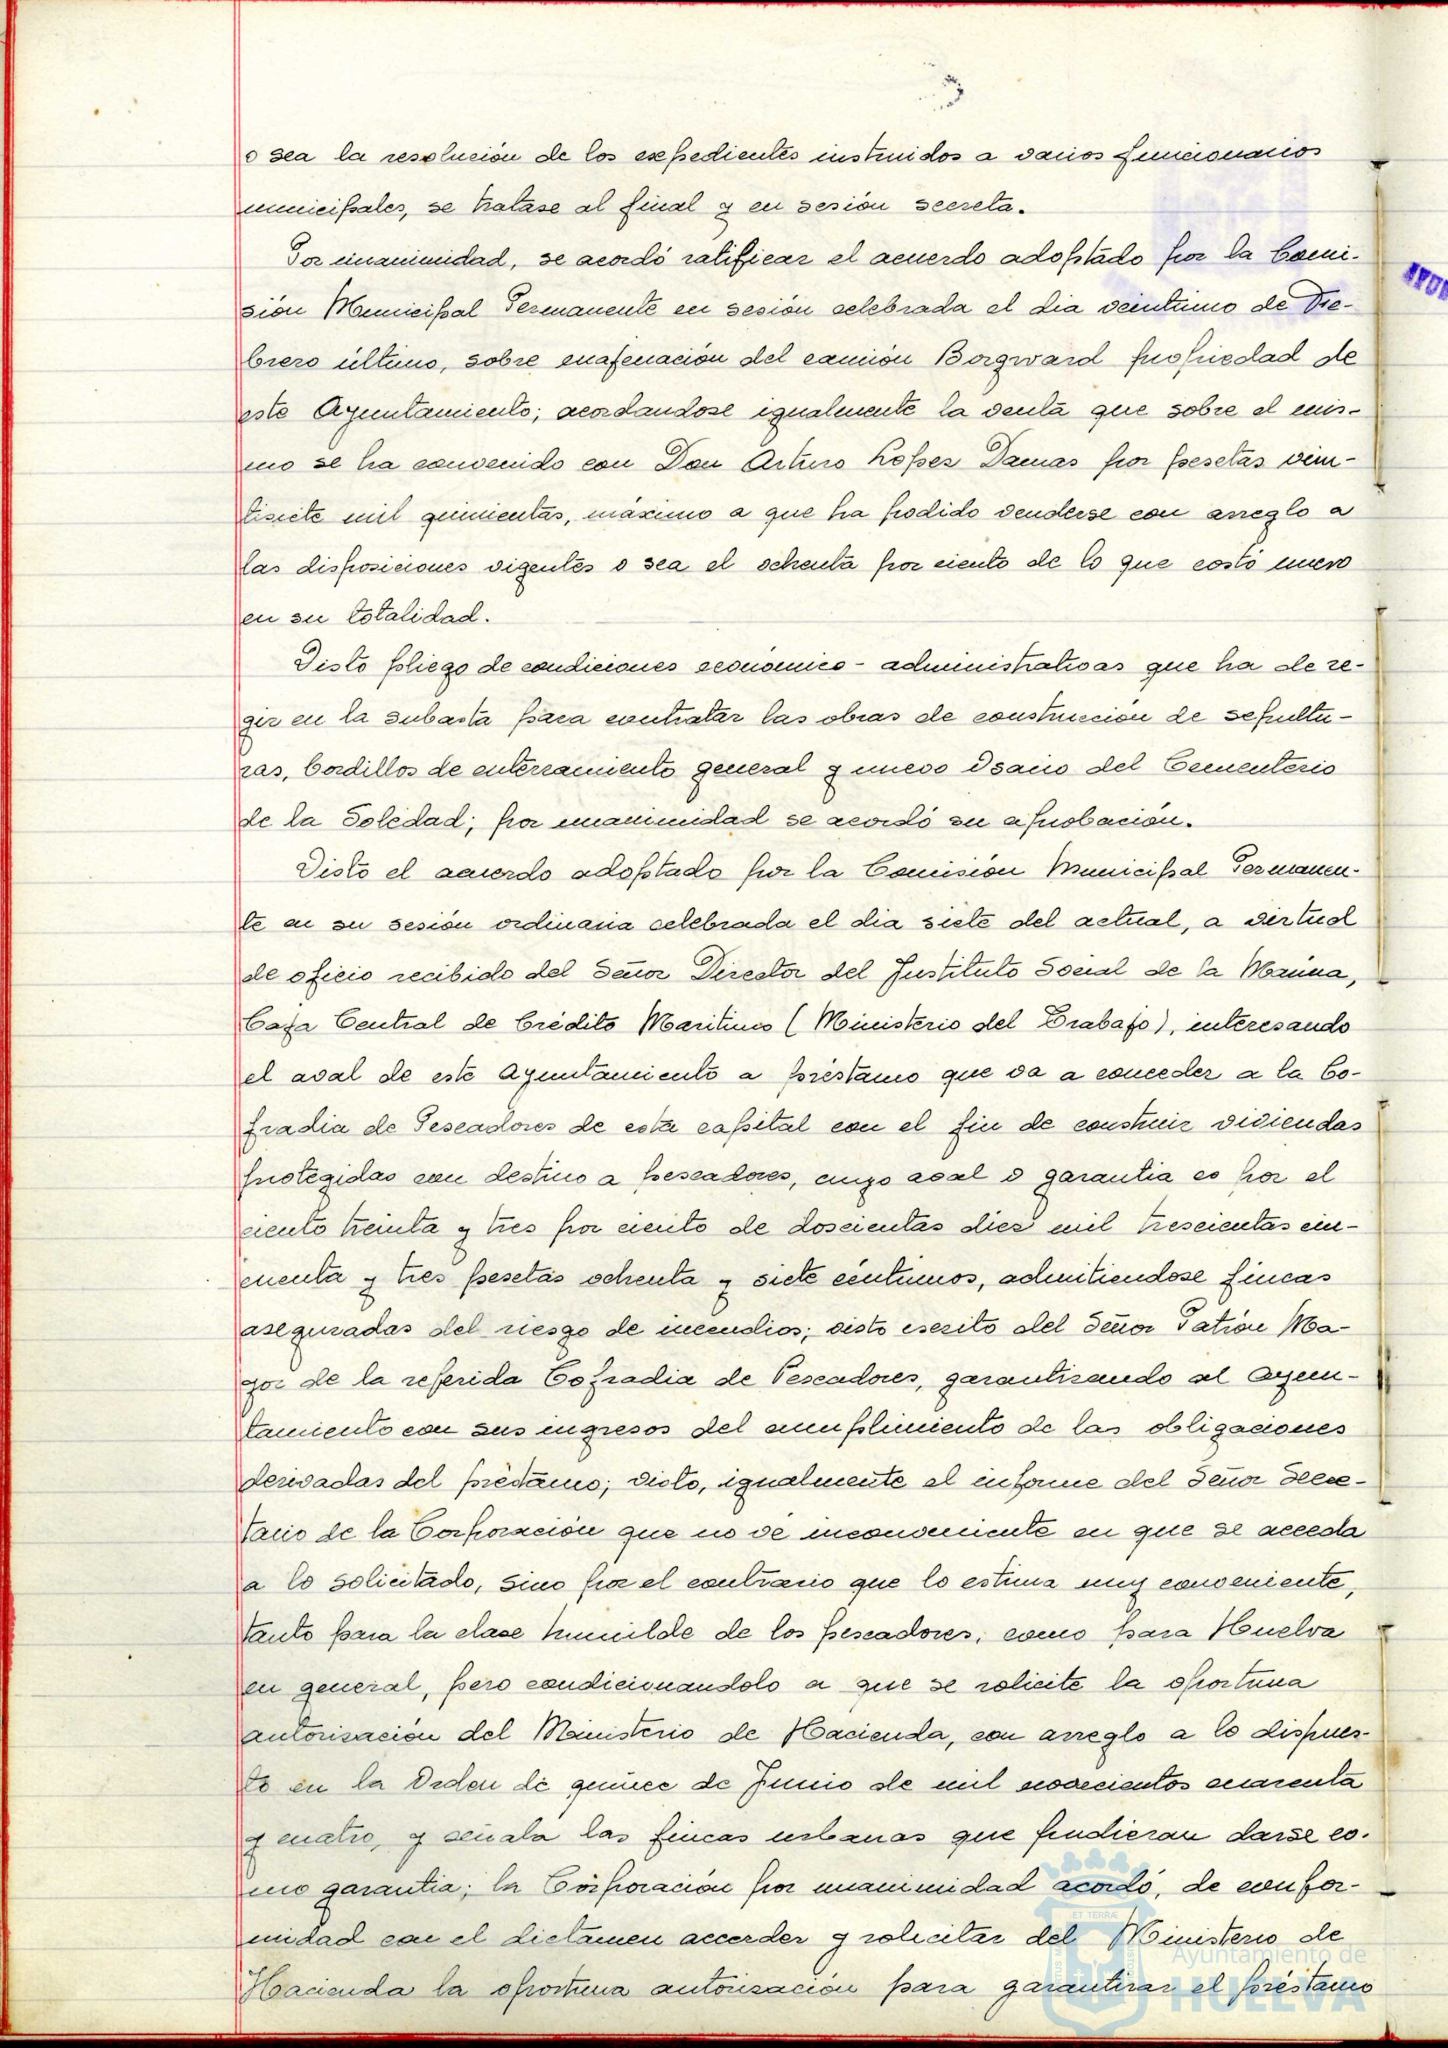 o sea la resolución de los expedientes instruidos a varios funcionarios
municipales, se tratase al final y en sesión secreta.
Por unanimidad, se acordó ratificar el acuerdo adoptado por la Comi-
sión Municipal Permanente en sesión celebrada el dia veintiuno de Fe-
brero último, sobre enajenación del camión Borgward propiedad de
este Ayuntamiento; acordandose igualmente la venta que sobre el mis-
mo se ha convenido con Don Arturo Lopez Damas por pesetas vein-
tisiete mil quinientas, máximo a que ha podido venderse con arreglo a
las disposiciones vigentes o sea el ochenta por ciento de lo que costó nuevo
en su totalidad.
Visto pliego de condiciones económico-administrativas que ha de re-
gir en la subasta para contratar las obras de construcción de sepultu-
ras, bordillos de enterramiento general y nuevo Osario del Cementerio
de la Soledad; por unanimidad se acordó su aprobación.
Visto el acuerdo adoptado por la Comisión Municipal Permanen-
te en su sesión ordinaria celebrada el dia siete del actual, a virtud
de oficio recibido del Señor Director del Instituto Social de la Marina,
Caja Central de Crédito Maritimo (Ministerio del Trabajo), interesando
el aval de este Ayuntamiento a préstamo que va a conceder a la Co-
fradia de Pescadores de esta capital con el fin de construir viviendas
protegidas con destino a pescadores, cuyo aval o garantia es por el
ciento treinta y tres por ciento de doscientas diez mil trescientas cin-
cuenta y tres pesetas ochenta y siete céntimos, admitiendose fincas
aseguradas del riesgo de incendios; visto escrito del Señor Patrón Ma-
yor de la referida Cofradia de Pescadores, garantizando al Ayun-
tamiento con sus ingresos del cumplimiento de las obligaciones
derivadas del prédtamo; visto, igualmente el informe del Señor Secre-
tario de la Corporación que no vé inconveniente en que se acceda
a lo solicitado, sino por el contrario que lo estima muy conveniente,
tanto para la clase humilde de los pescadores, como para Huelva
en general, pero condicionandolo a que se solicite la oportuna
autorización del Ministerio de Hacienda, con arreglo a lo dispues-
to en la Orden de quince de Junio de mil novecientos cuarenta
y cuatro, y señala las fincas urbanas que pudieran darse co-
mo garantia; la Corporación por unanimidad acordó, de confor-
midad con el dictamen acceder y solicitar del Ministerio de
Hacienda la oportuna autorización para garantizar el préstamo
AYUN
ET TERRÆ
Ayuntamiento de
HUELVA